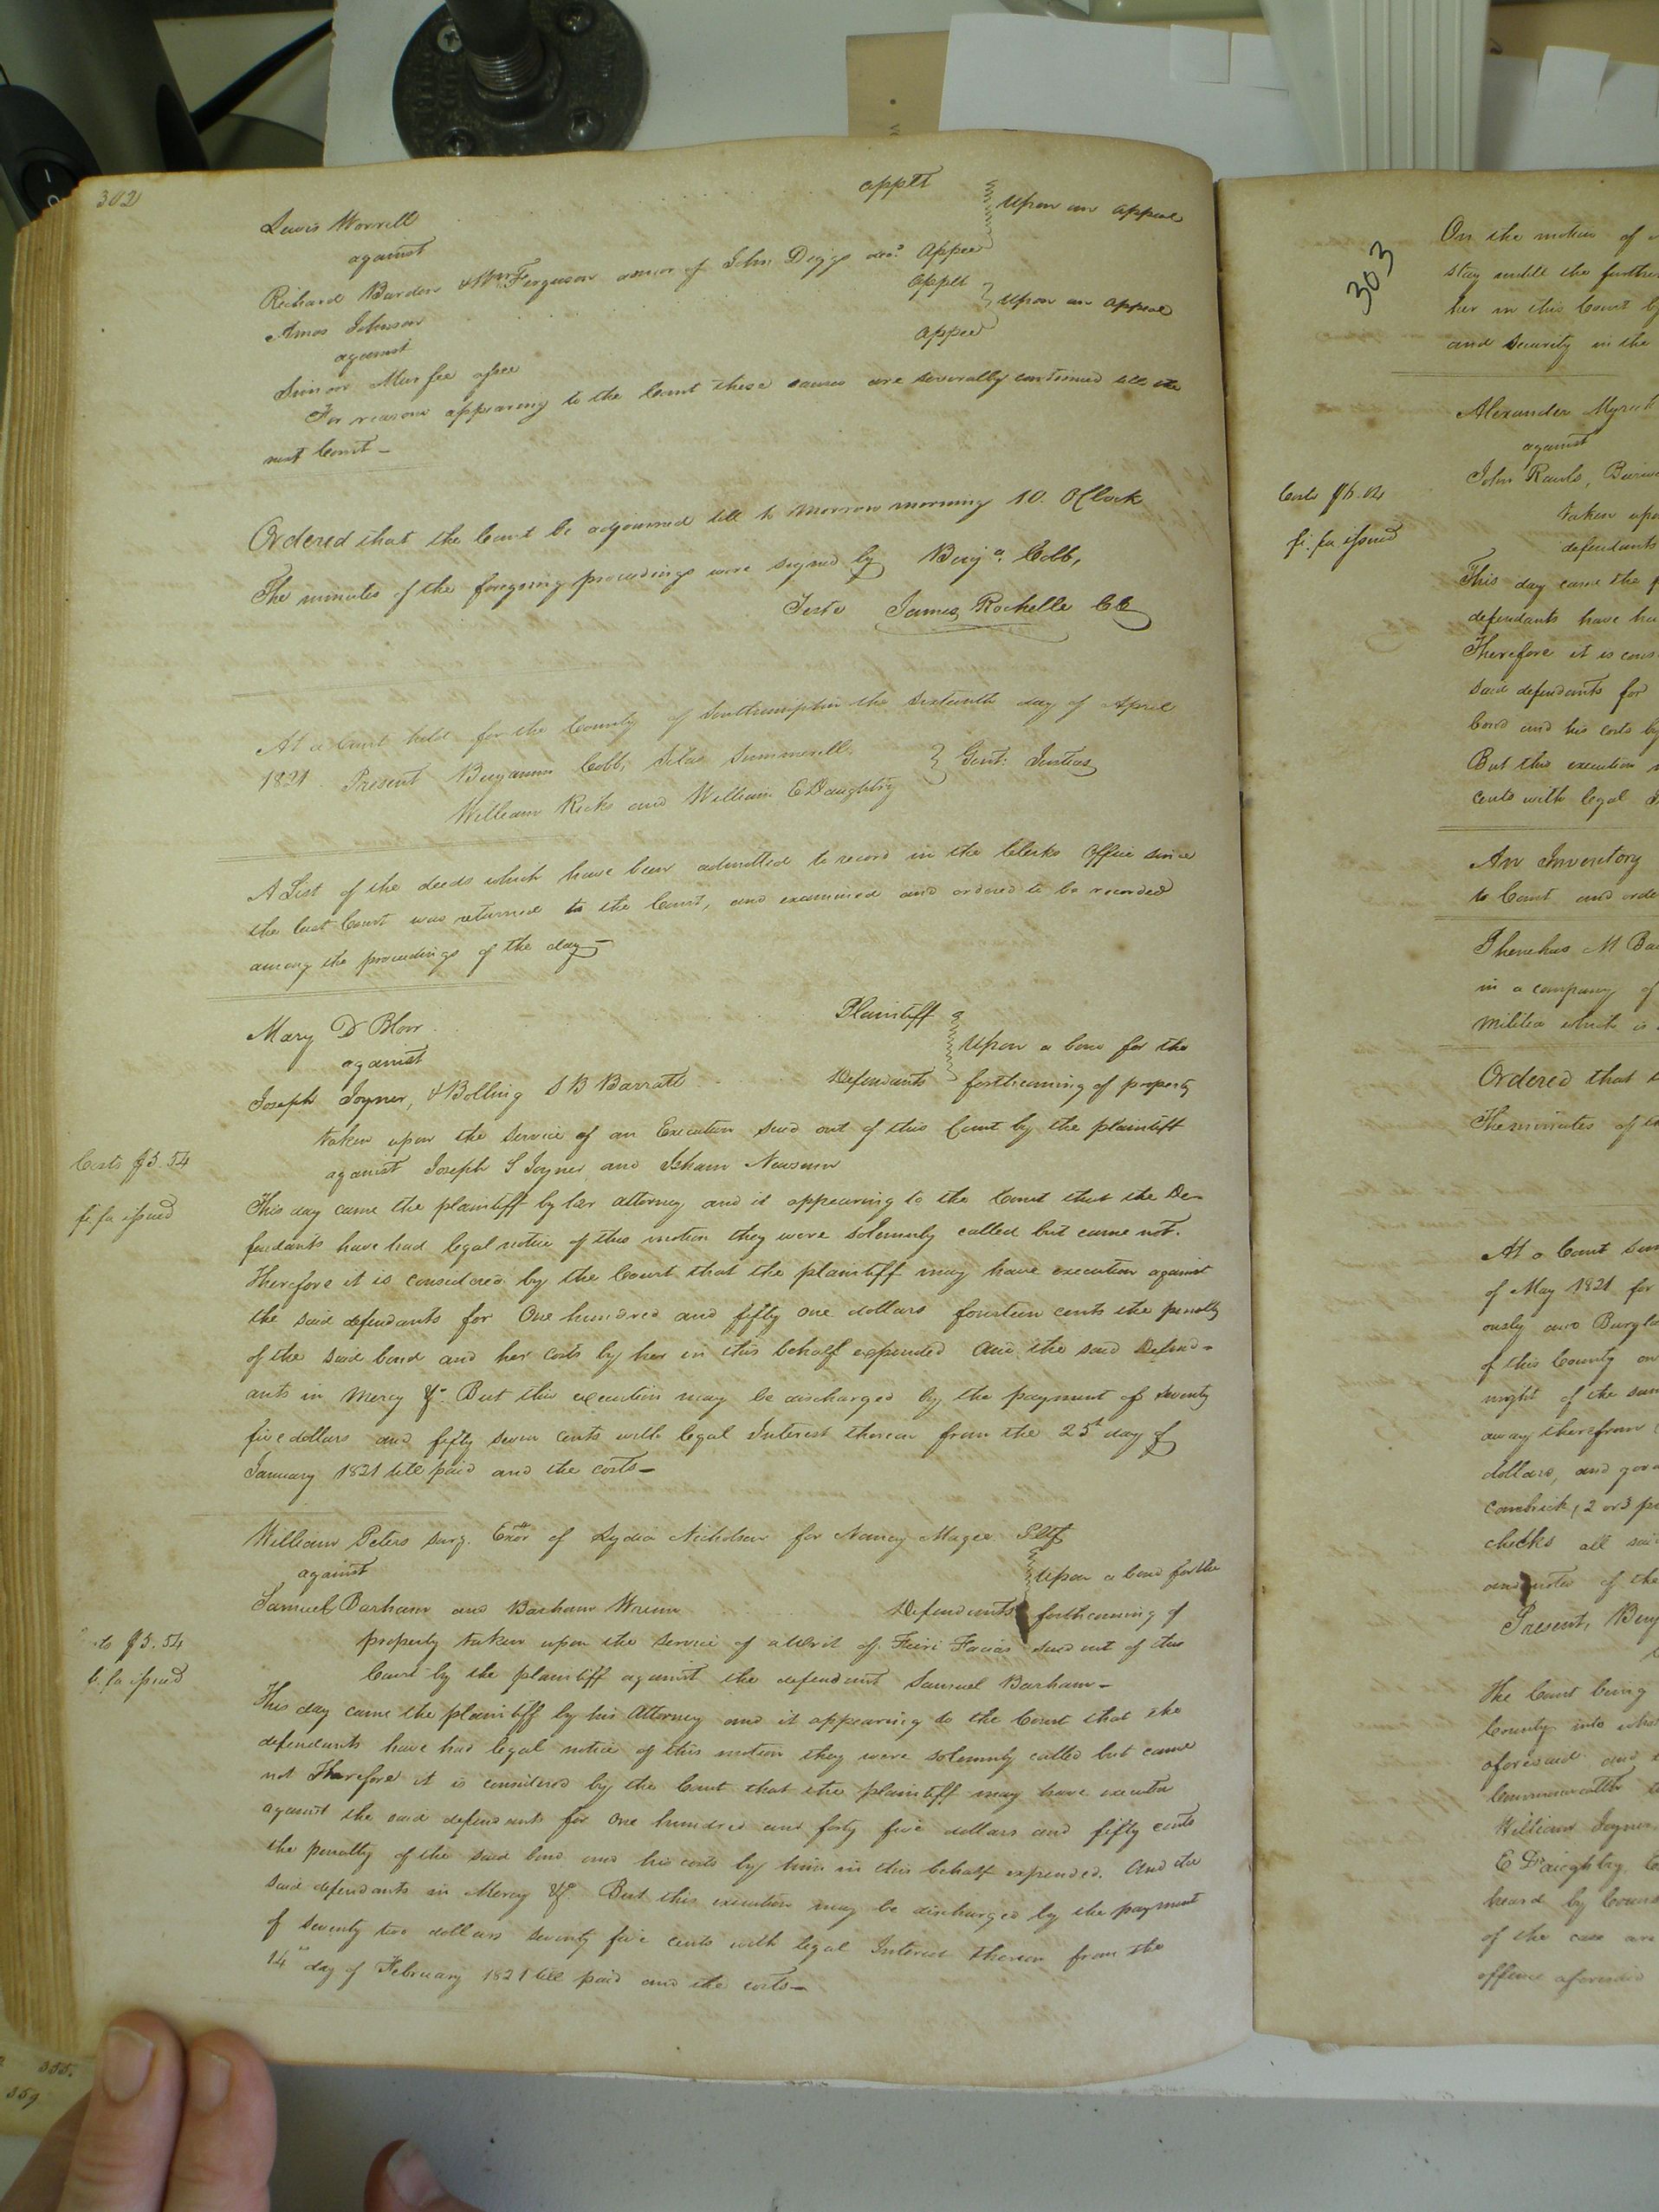 302
Lewis Worrell appt
against Upon an appeal
Richard Barden & Wm Ferguson of John Diggs appee
Amos Johnson applt
against Upon an appeal
Simon Murfee appee
For reasons appearing to the Court these causes are severally continued till the
next Court –
Ordered that the Court be adjourned till to morrow morning 10. OClock
The minutes of the foregoing proceedings were signed by Benja. Cobb,
Teste James Rochelle CC
At a Court held for the County of Southampton the sixteenth day of April
1821. Present Benjamin Cobb, Silas Summerell
William Ricks and William E Daughtry } Gent: Justices
A List of the deeds which have been admitted to record in the Clerks Office since
the last Court was returned to the Court, and examined and ordered to be recorded
among the proceedings of the day –
Mary D Blow Plaintiff
against Upon a bond for the
Joseph Joyner, & Bolling S B Barratt Defendants forthcoming of property
taken upon the service of an Execution sued out of this Court by the plaintiff
against Joseph S Joyner and Isham Newsum
Costs $5.54
fi. fa issued
This day came the plaintiff by her attorney and it appearing to the Court that the De-
fendants have had legal notice of this motion they were solemnly called but came not.
Therefore it is considered by the Court that the plaintiff may have execution against
the said defendants for One hundred and fifty one dollars fourteen cents the penalty
of the said bond and her costs by her in this behalf expended And the said Defend-
ants in Mercy &c. But this execution may be discharged by the payment of seventy
five dollars and fifty seven cents with legal Interest thereon from the 25th day of
January 1821 till paid and the costs –
William Peters surg. Exor of Lydia Nicholson for Nancy Magee Pltf
against Upon a bond for the
Samuel Barham and Barham Wrenn Defendants forthcoming of
property taken upon the service of a Writ of Fieri Facias sued out of this
Court by the plaintiff against the defendant Samuel Barham –
$5.54
fa issued
This day came the plaintiff by his Attorney and it appearing to the Court that the
defendants have had legal notice of this motion they were solemnly called but came
not Therefore it is considered by the Court that the plaintiff may have execution
against the said defendants for One hundred and forty five dollars and fifty cents
the penalty of the said bond and his costs by him in this behalf expended. And the
said defendants in Mercy &c. But this execution may be discharged by the payment
of seventy two dollars seventy five cents with legal Interest thereon from the
14th day of February 1821 till paid and the costs –
355.
359
303
On the motion of
stay untill the further
her in this Court by
and security in the
Alexander Myrick
against
John Rawls,
taken upon
defendants
Costs $6.04
fi. fa issued
This day came the
defendants have had
Therefore it is cons
said defendants for
bond and his costs by
But this execution
cents with legal
An Inventory
to Court and orde
M Ba
in a company of
militia which is
Ordered that
The minutes of
At a Court
of May 1821 for
ously and Burgla
of this County on
night of the sam
away therefrom
dollars, and
cambrick, 2 or 3
checks all
of the
Present, Benj
The Court being
County into
aforesaid and
Commonwealth
William Joyner
E Daughtry
heard by Couns
of the case are
offence aforesaid